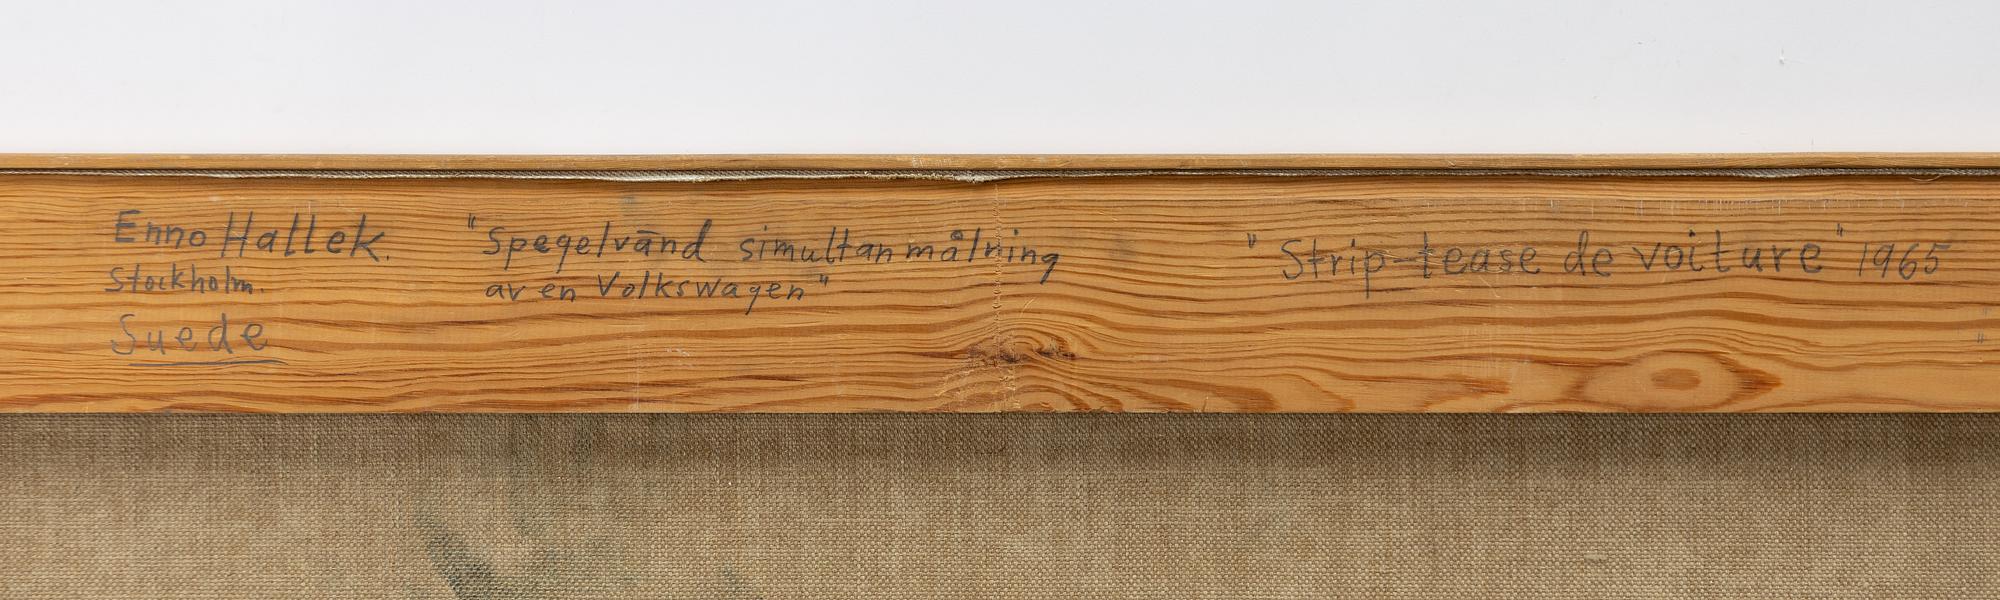 Enno Hallek.
Stockholm.
Suede
"Spegelvänd simultanmålning
av en Volkswagen"
"Strip-tease de voiture" 1965